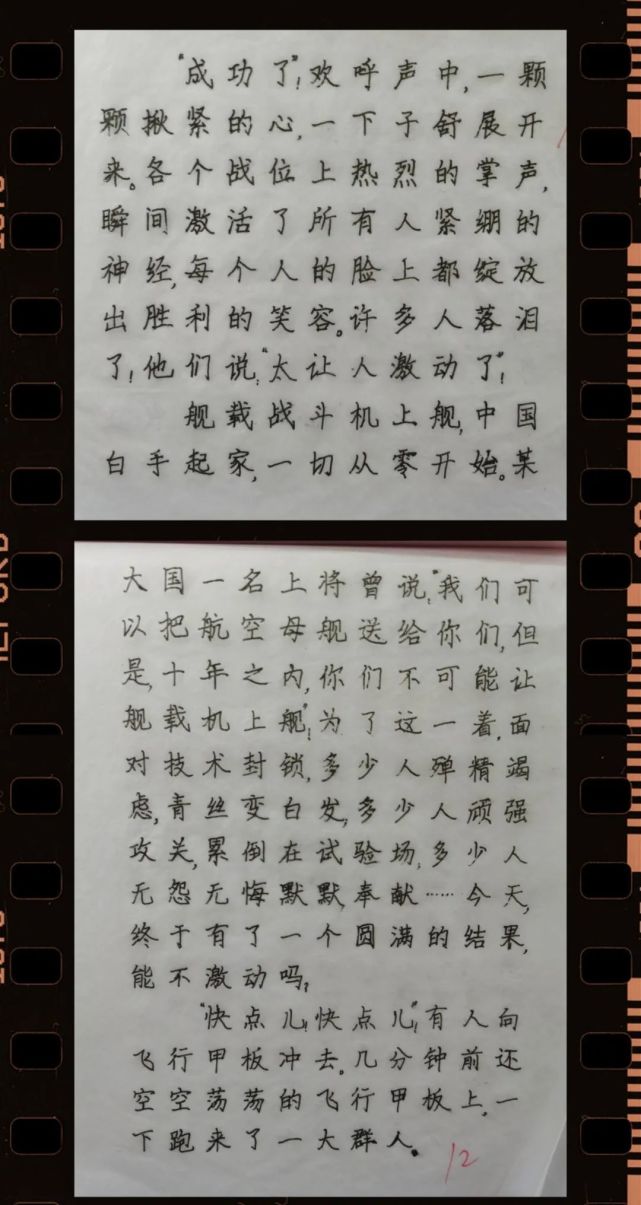 “成功了”!欢呼声中,一颗
颗揪紧的心,一下子舒展开
来。各个战位上热烈的掌声,
瞬间激活了所有人紧绷的
神经,每个人的脸上都绽放
出胜利的笑容。许多人落泪
了!他们说:“太让人激动了”!
舰载战斗机上舰,中国
白手起家,一切从零开始。某
大国一名上将曾说:“我们可
以把航空母舰送给你们,但
是,十年之内,你们不可能让
舰载机上舰”!为了这一着,面
对技术封锁,多少人殚精竭
虑,青丝变白发,多少人顽强
攻关,累倒在试验场,多少人
无怨无悔默默,奉献……今天,
终于有了一个圆满的结果,
能不激动吗?
“快点儿!快点儿”!有人向
飞行甲板冲去。几分钟前还
空空荡荡的飞行甲板上,一
下跑来了一大群人。
12